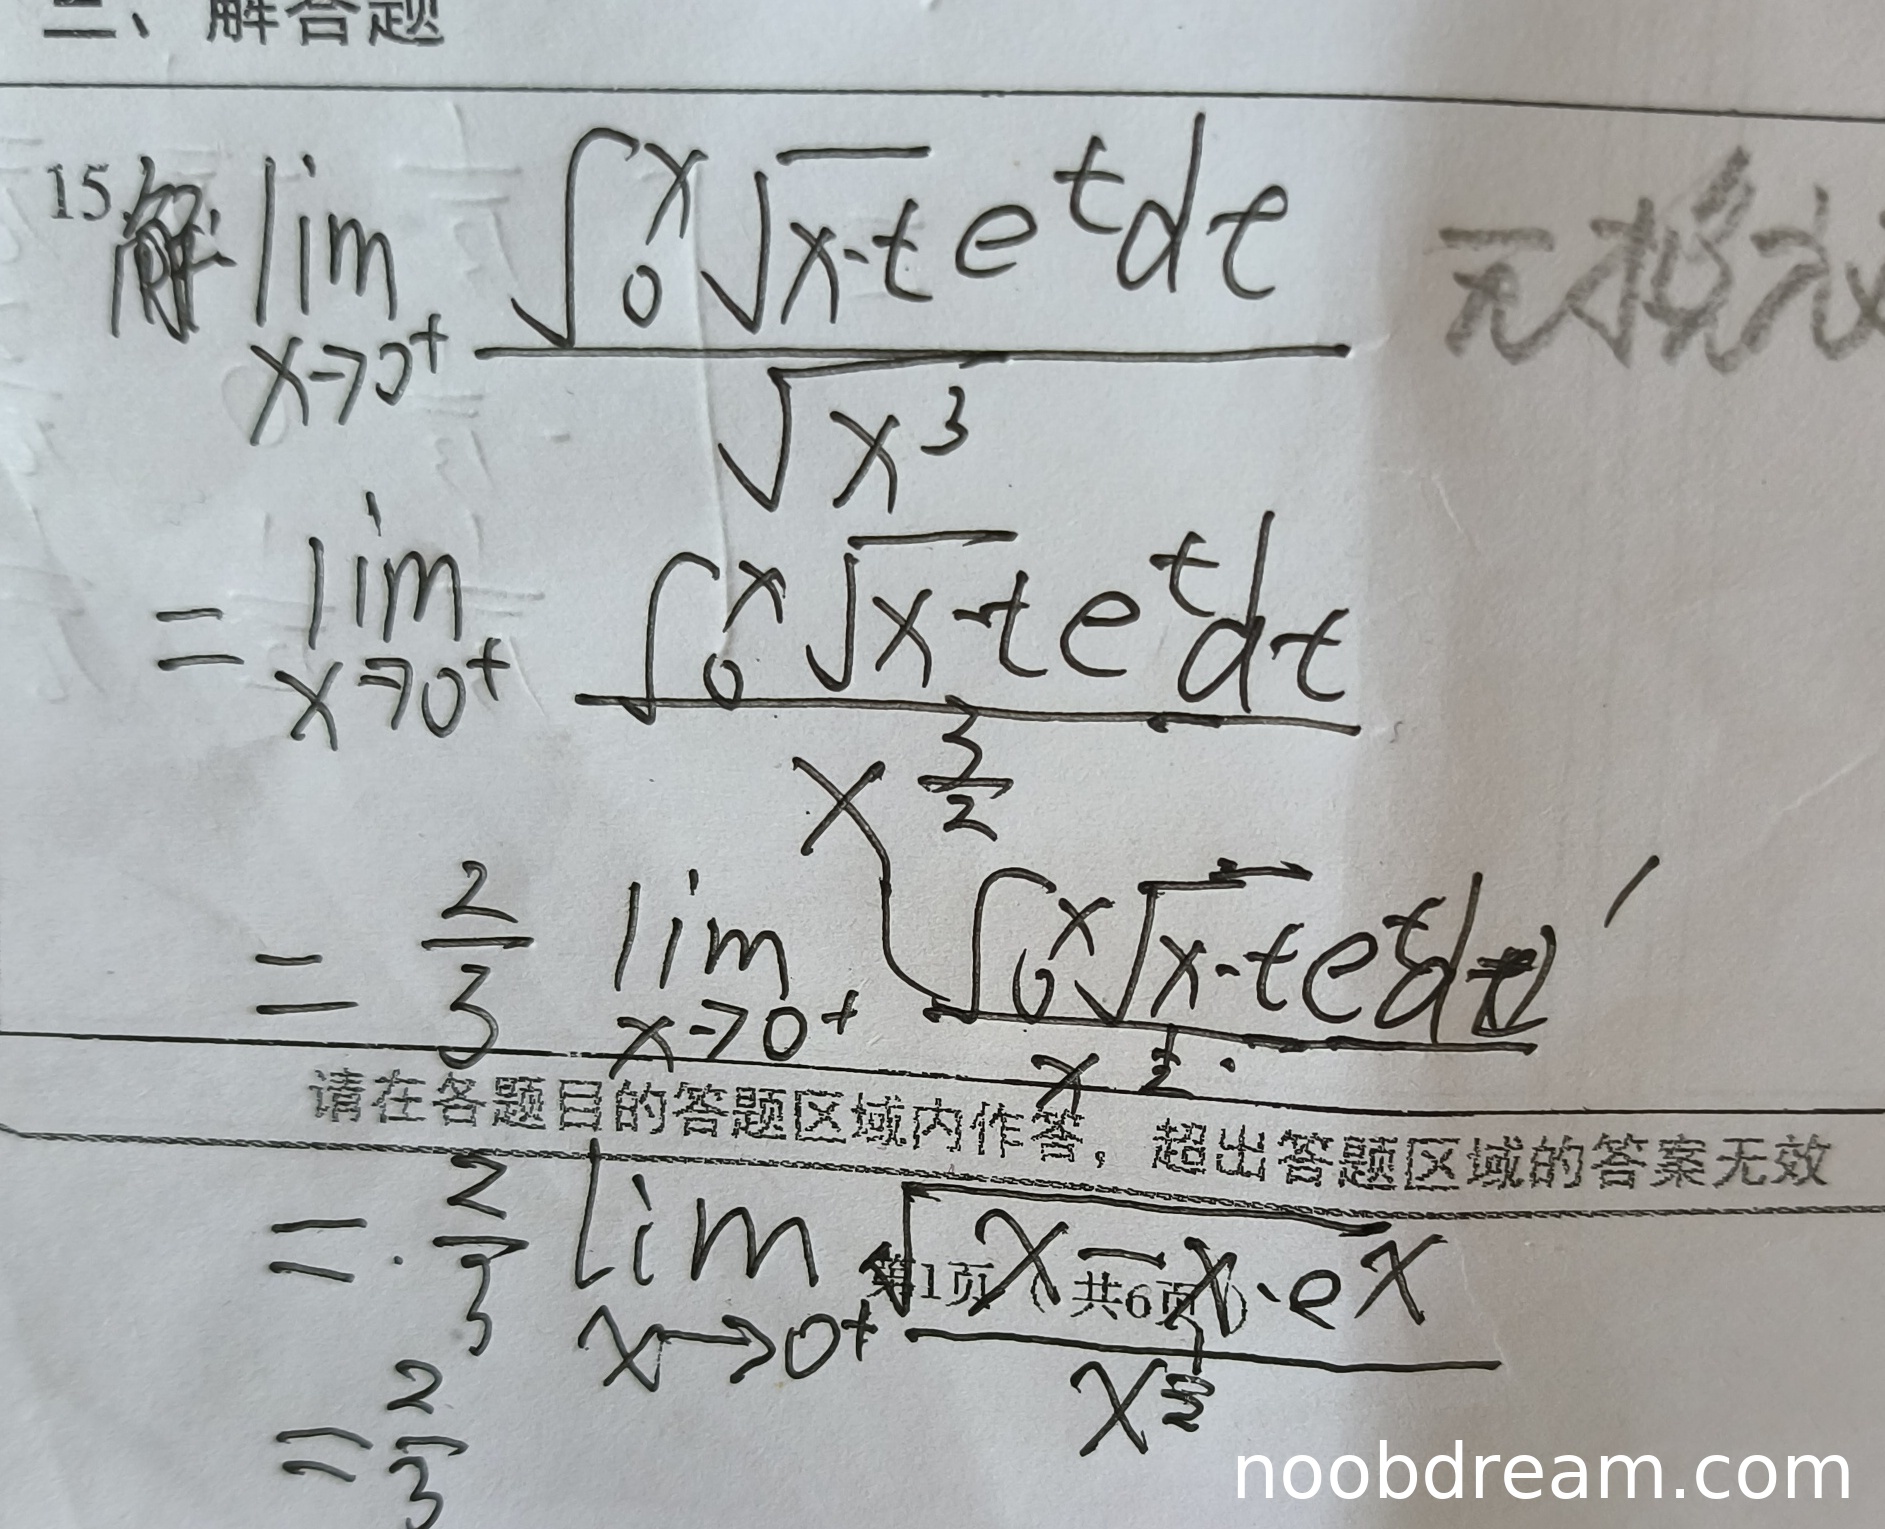 三、解答题
15. 解: lim x→0⁺ ∫₀ˣ √(x-t) eᵗdt / √x³
= lim x→0⁺ ∫₀ˣ √(x-t) eᵗdt / x^(3/2)
= 2/3 lim x→0⁺ (∫₀ˣ √(x-t) eᵗdt)′ / x^(1/2)
请在各题目的答题区域内作答，超出答题区域的答案无效
= 2/3 lim x→0⁺ √(x-x)·eˣ / x^(1/2)
第1页（共6页）
= 2/3
noobdream.com